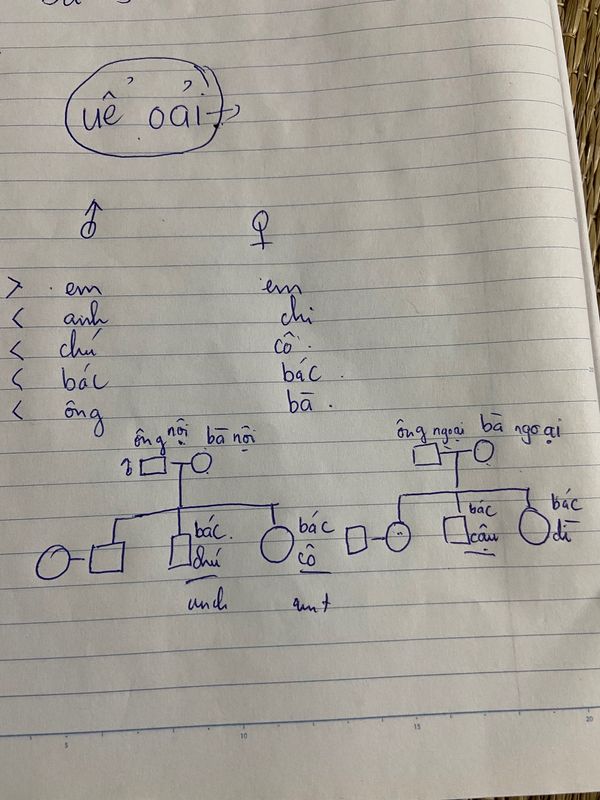 uể oải
♂ ♀
> em em
< anh chi
< chú cô
< bác bác
< ông bà
ông nội bà nội ông ngoại bà ngoại
bác bác bác bác
chú cô cậu dì
aunt
5 10 15 20